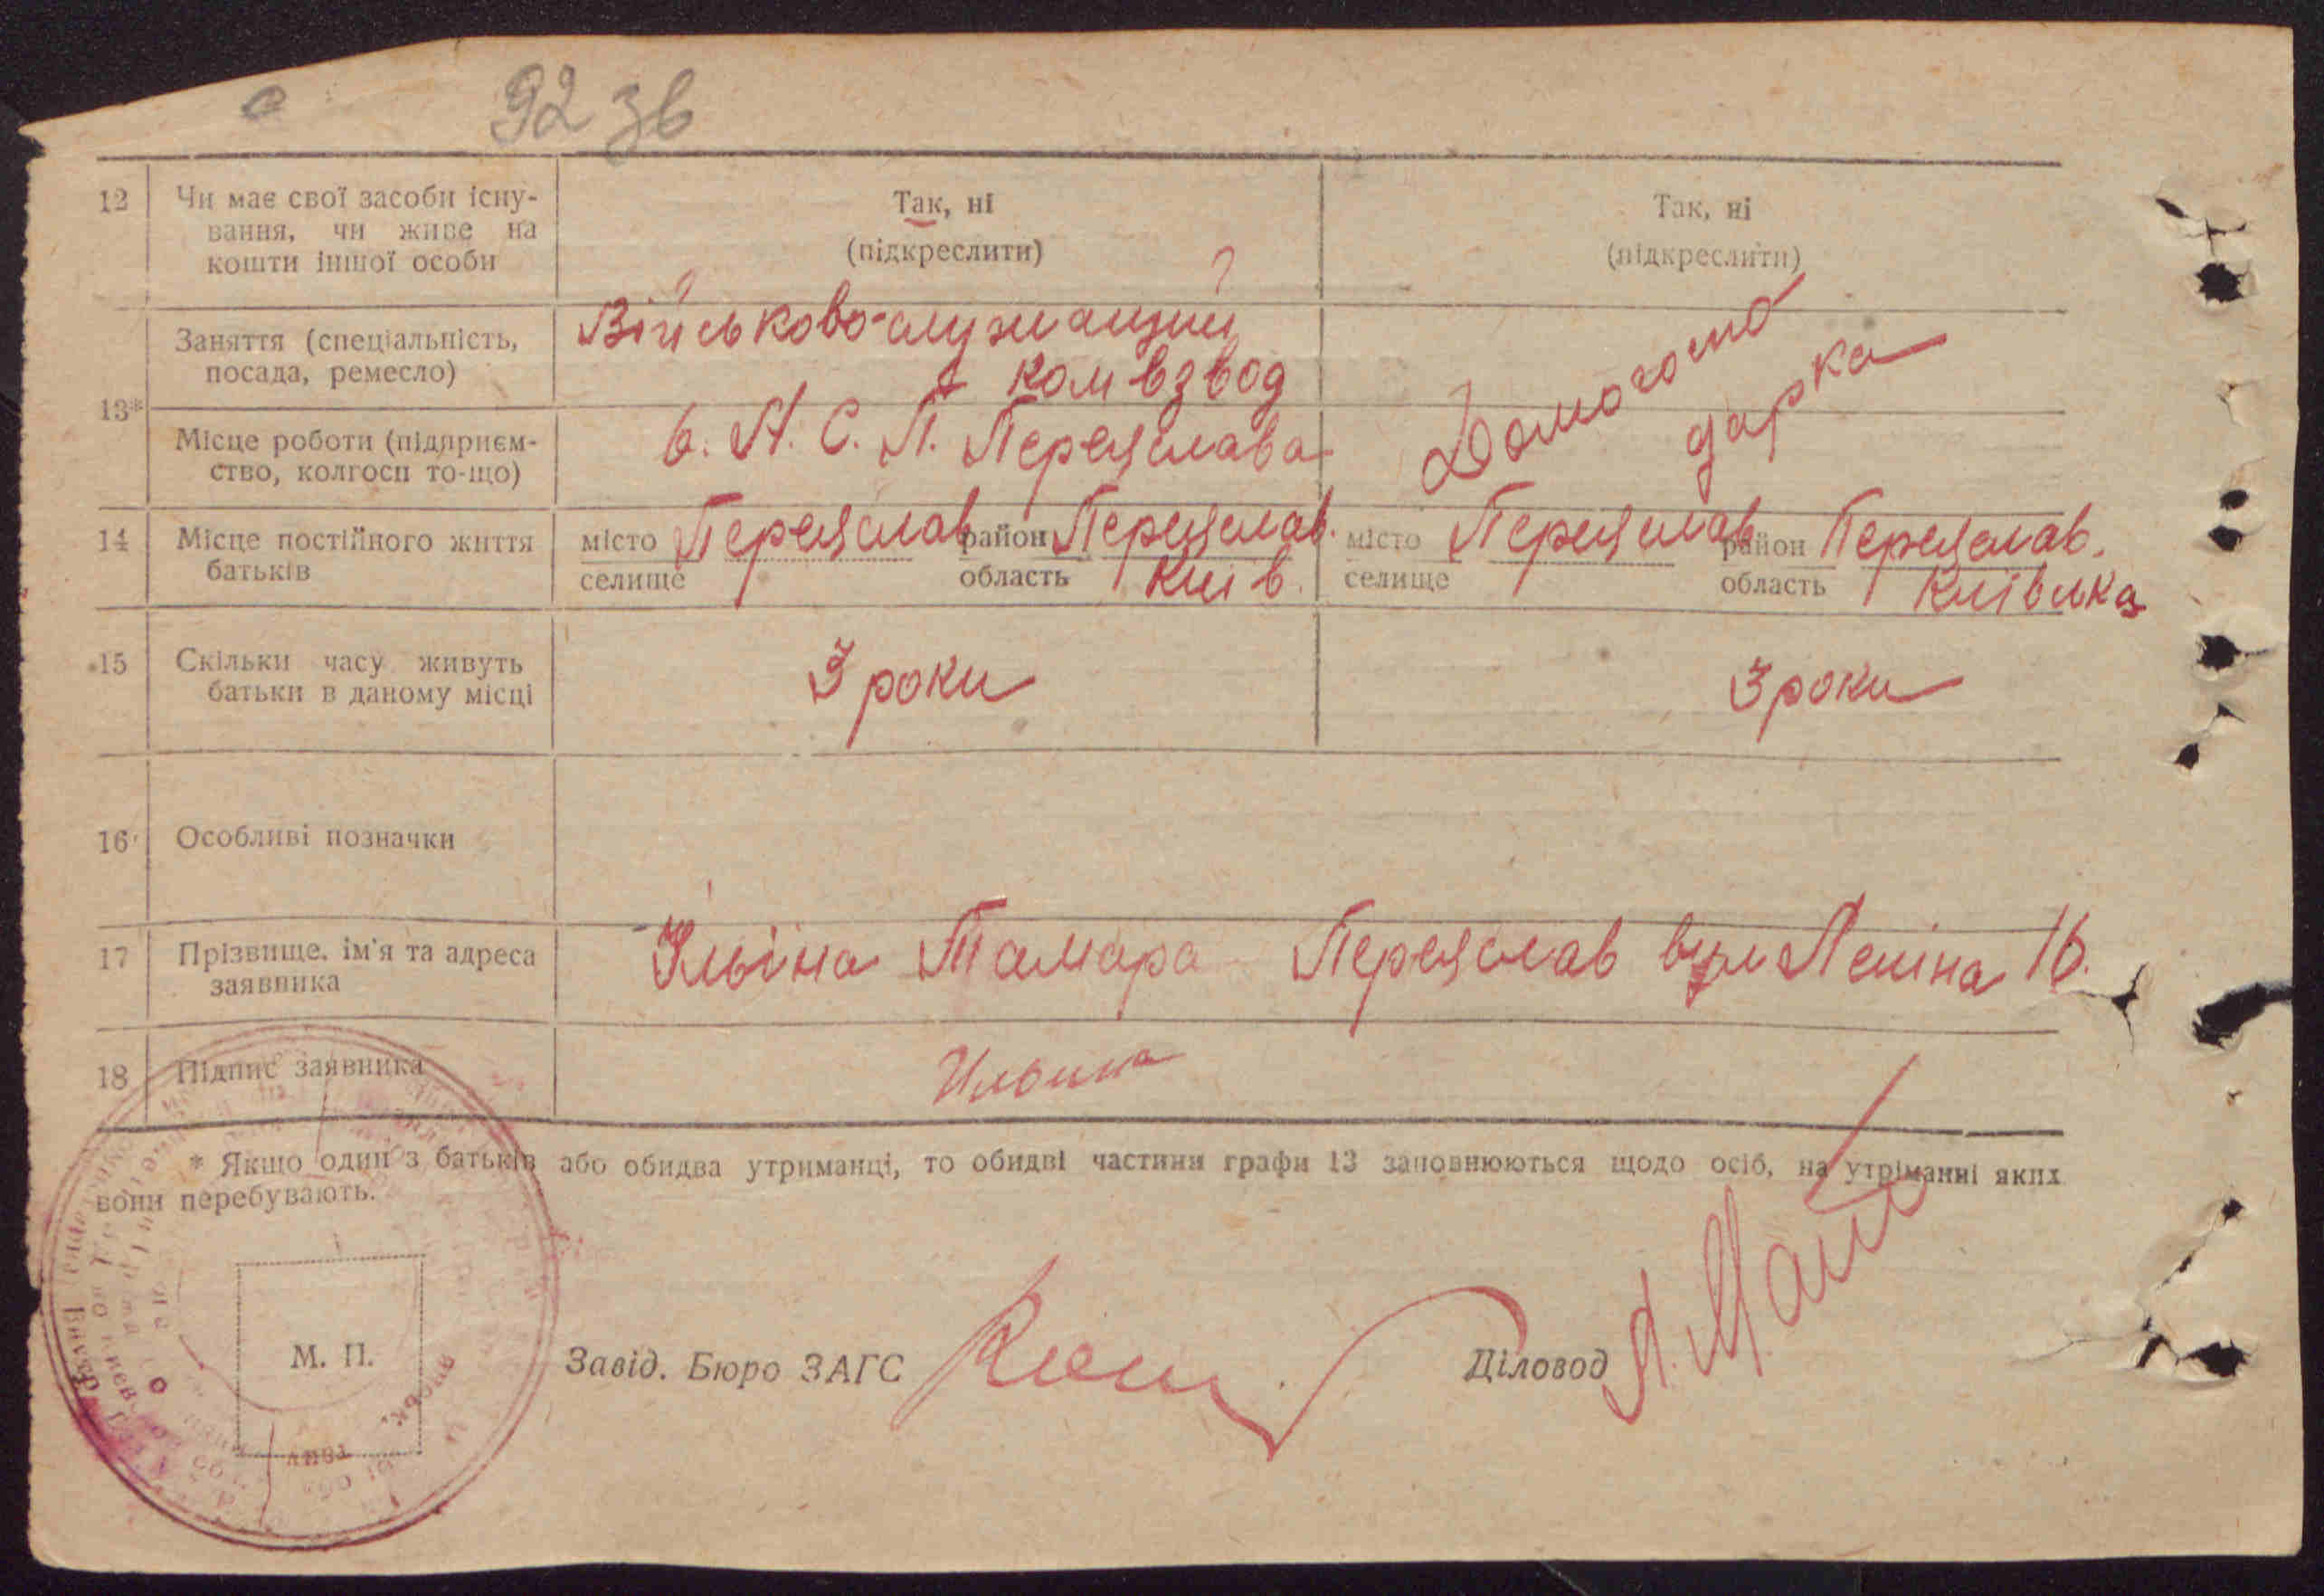 92 зв
12 Чи має свої засоби існу-
вання, чи живе на
кошти іншої особи
Так, ні
(підкреслити)
Так, ні
(підкреслити)
13*
Заняття (спеціальність,
посада, ремесло)
Військово-служащий
комвзвод
Домогоспо
дарка
Місце роботи (підприєм-
ство, колгосп то-що)
в. А. С. П. Переяслава
14 Місце постійного життя
батьків
місто Переяслав район Переяслав.
селище область Київ.
місто Переяслав район Переяслав.
селище область Київська
15 Скільки часу живуть
батьки в даному місці
3 роки
3 роки
16 Особливі позначки
17 Прізвище, ім'я та адреса
заявника
Ільіна Тамара Переяслав вул Леніна 16.
18 Підпис заявника
Ильина
* Якщо один з батьків або обидва утриманці, то обидві частини графи 13 заповнюються щодо осіб, на утріманні яких
вони перебувають.
М. П.
Завід. Бюро ЗАГС
Діловод